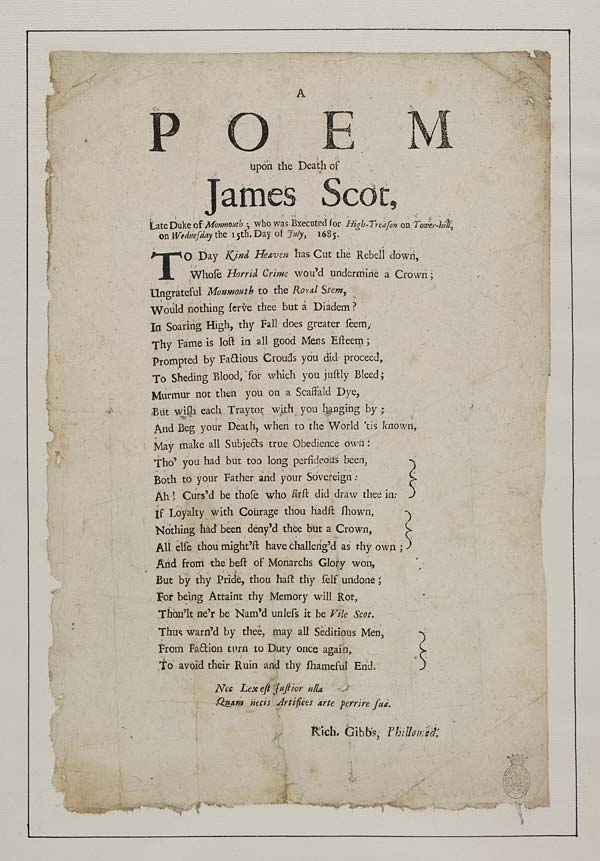 A
POEM
upon the Death of
James Scot,
Late Duke of Monmouth; who was Executed for High-Treaſon on Tower-hill,
on Wedneſday the 15th. Day of July, 1685.
TO Day Kind Heaven has Cut the Rebell down,
Whoſe Horrid Crime wou'd undermine a Crown;
Ungrateful Monmouth to the Royal Stem,
Would nothing ſerve thee but a Diadem?
In Soaring High, thy Fall does greater ſeem,
Thy Fame is loſt in all good Mens Eſteem;
Prompted by Factious Crouds you did proceed,
To Sheding Blood, for which you juſtly Bleed;
Murmur not then you on a Scaffald Dye,
But wiſh each Traytor with you hanging by;
And Beg your Death, when to the World 'tis known,
May make all Subjects true Obedience own:
Tho' you had but too long perfideous been,
Both to your Father and your Sovereign:
Ah! Curs'd be thoſe who firſt did draw thee in:
If Loyalty with Courage thou hadſt ſhown,
Nothing had been deny'd thee but a Crown,
All elſe thou might'ſt have challeng'd as thy own;
And from the beſt of Monarchs Glory won,
But by thy Pride, thou haſt thy ſelf undone;
For being Attaint thy Memory will Rot,
Thou'lt ne'r be Nam'd unleſs it be Vile Scot.
Thus warn'd by thee, may all Seditious Men,
From Faction turn to Duty once again,
To avoid their Ruin and thy ſhameful End.
Nec Lex eſt Juſtior ulla
Quam necis Artifices arte perrire ſua.
Rich. Gibbs, Philloméd.